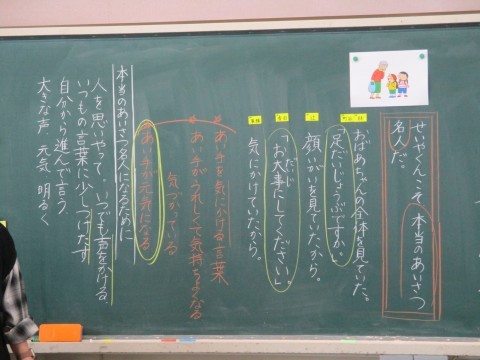 せいやくんこそ、本当のあいさつ
名人だ。
おばあちゃんの全体を見ていた。
「足だいじょうぶですか。」
顔いがいを見ていたから。
「お大事にしてください。」
だいじ
気にかけていたから。
あい手を気にかける言葉
あい手がうれしくて気持ちよくなる
気づかっている
あい手が元気になる
本当のあいさつ名人になるために
人を思いやって、いつでも声をかける、
いつもの言葉に少しつけたす
自分から進んで言う
大きな声 元気 明るく